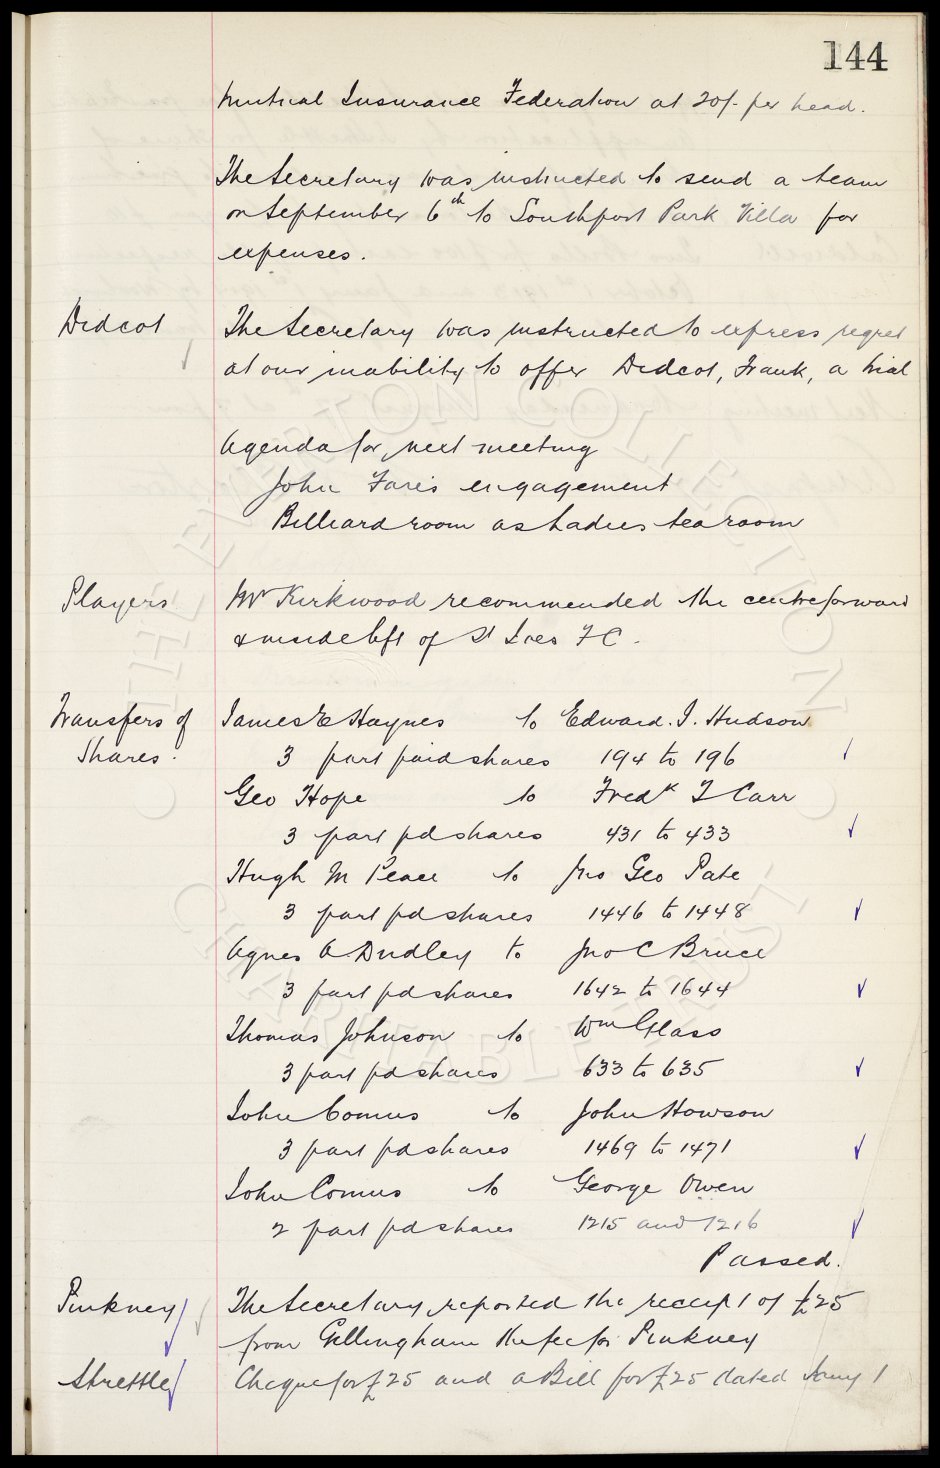 144
Mutual Insurance Federation at 20/- per head.
The Secretary was instructed to send a team
on September 6th to Southport Park Villa for
expenses.
Didcot
The Secretary was instructed to express regret
at our inability to offer Didcot, Frank, a trial
Agenda for next meeting
John Fares engagement
Billiard room as Ladies tea room
Players
Mr Kirkwood recommended the centre forward
& inside left of St Ives F C.
Transfers of
Shares.
James E Haynes to Edward. J. Hudson
3 part paid shares 194 to 196
Geo Hope to Fredk T Carr
3 part pd shares 431 to 433
Hugh M Peace to Jno Geo Pate
3 part pd shares 1446 to 1448
Agnes A Dudley to Jno C Bruce
3 part pd shares 1642 to 1644
Thomas Johnson to Wm Glass
3 part pd shares 633 to 635
John Comus to John Howson
3 part pd shares 1469 to 1471
John Comus to George Owen
2 part pd shares 1215 and 1216
Passed.
Pinkney
The Secretary reported the receipt of £25
from Gillingham the fee for Pinkney
Strettle
Cheque for £25 and a Bill for £25 dated Jany 1